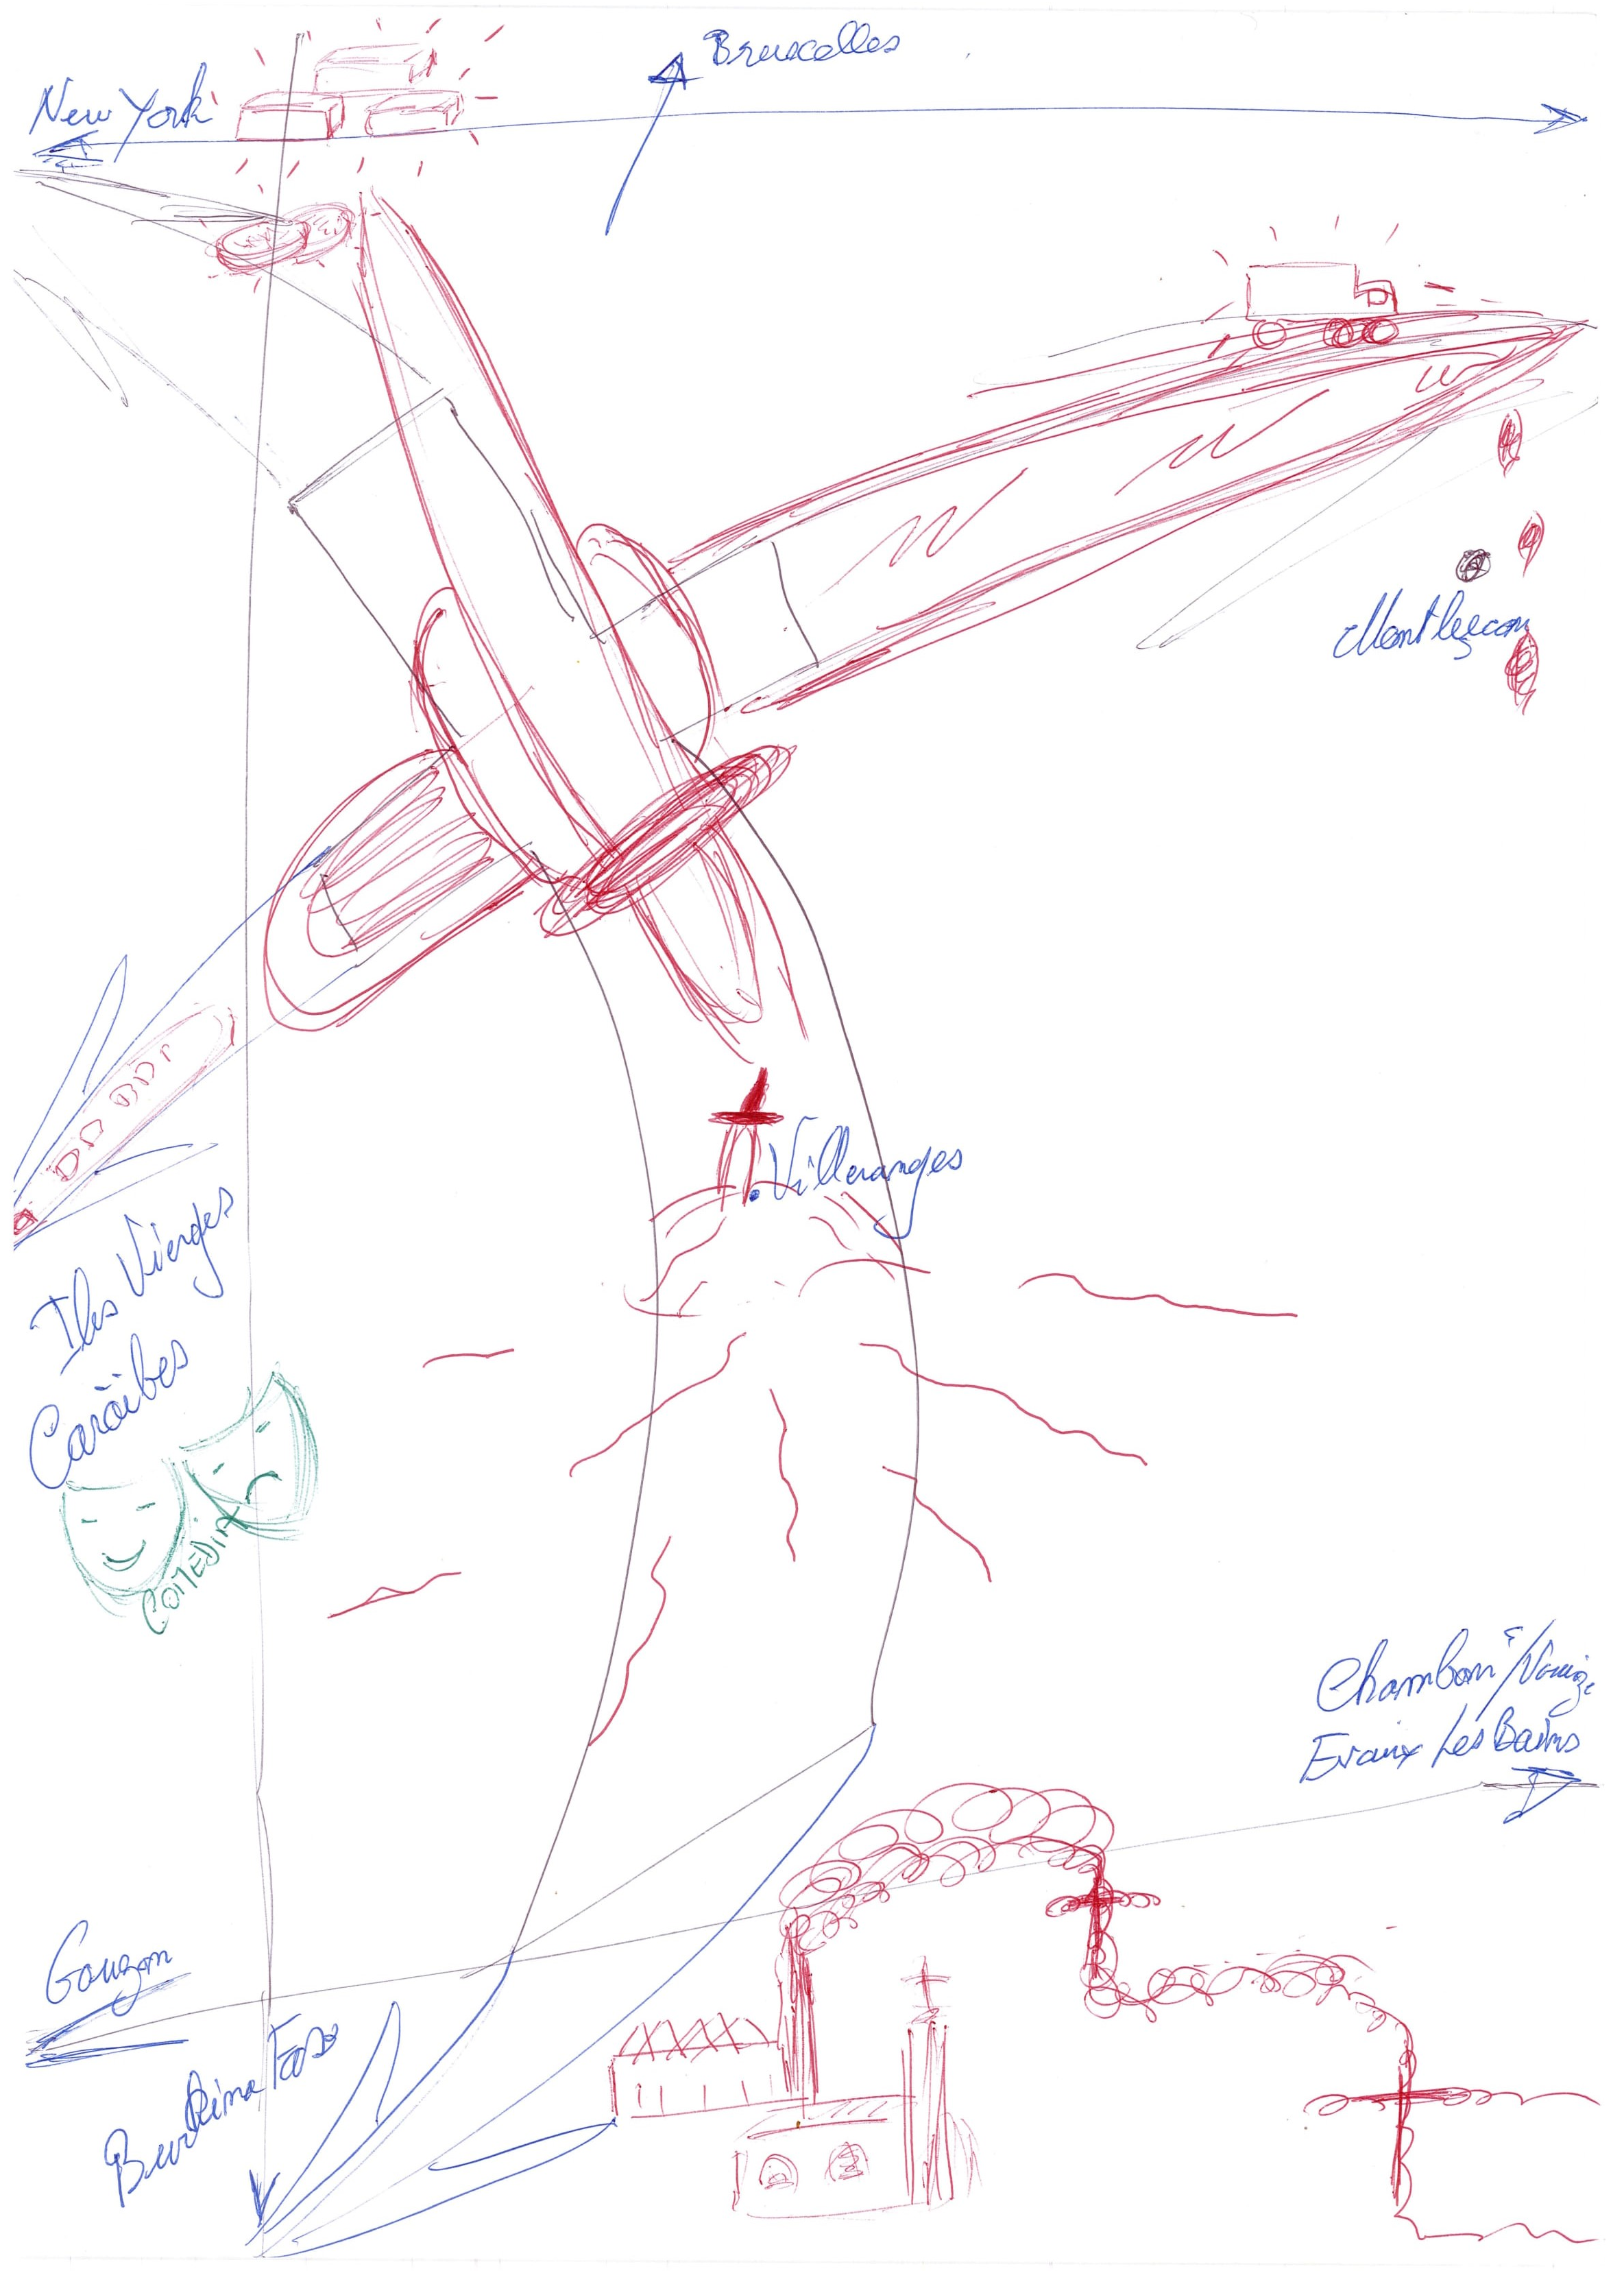 Bruxelles
New York
Montluçon
Villeranges
Iles Vierges
Caraïbes
COMEDIA
Chambon s/Voueize
Evaux Les Bains
Gouzon
Burkina Faso